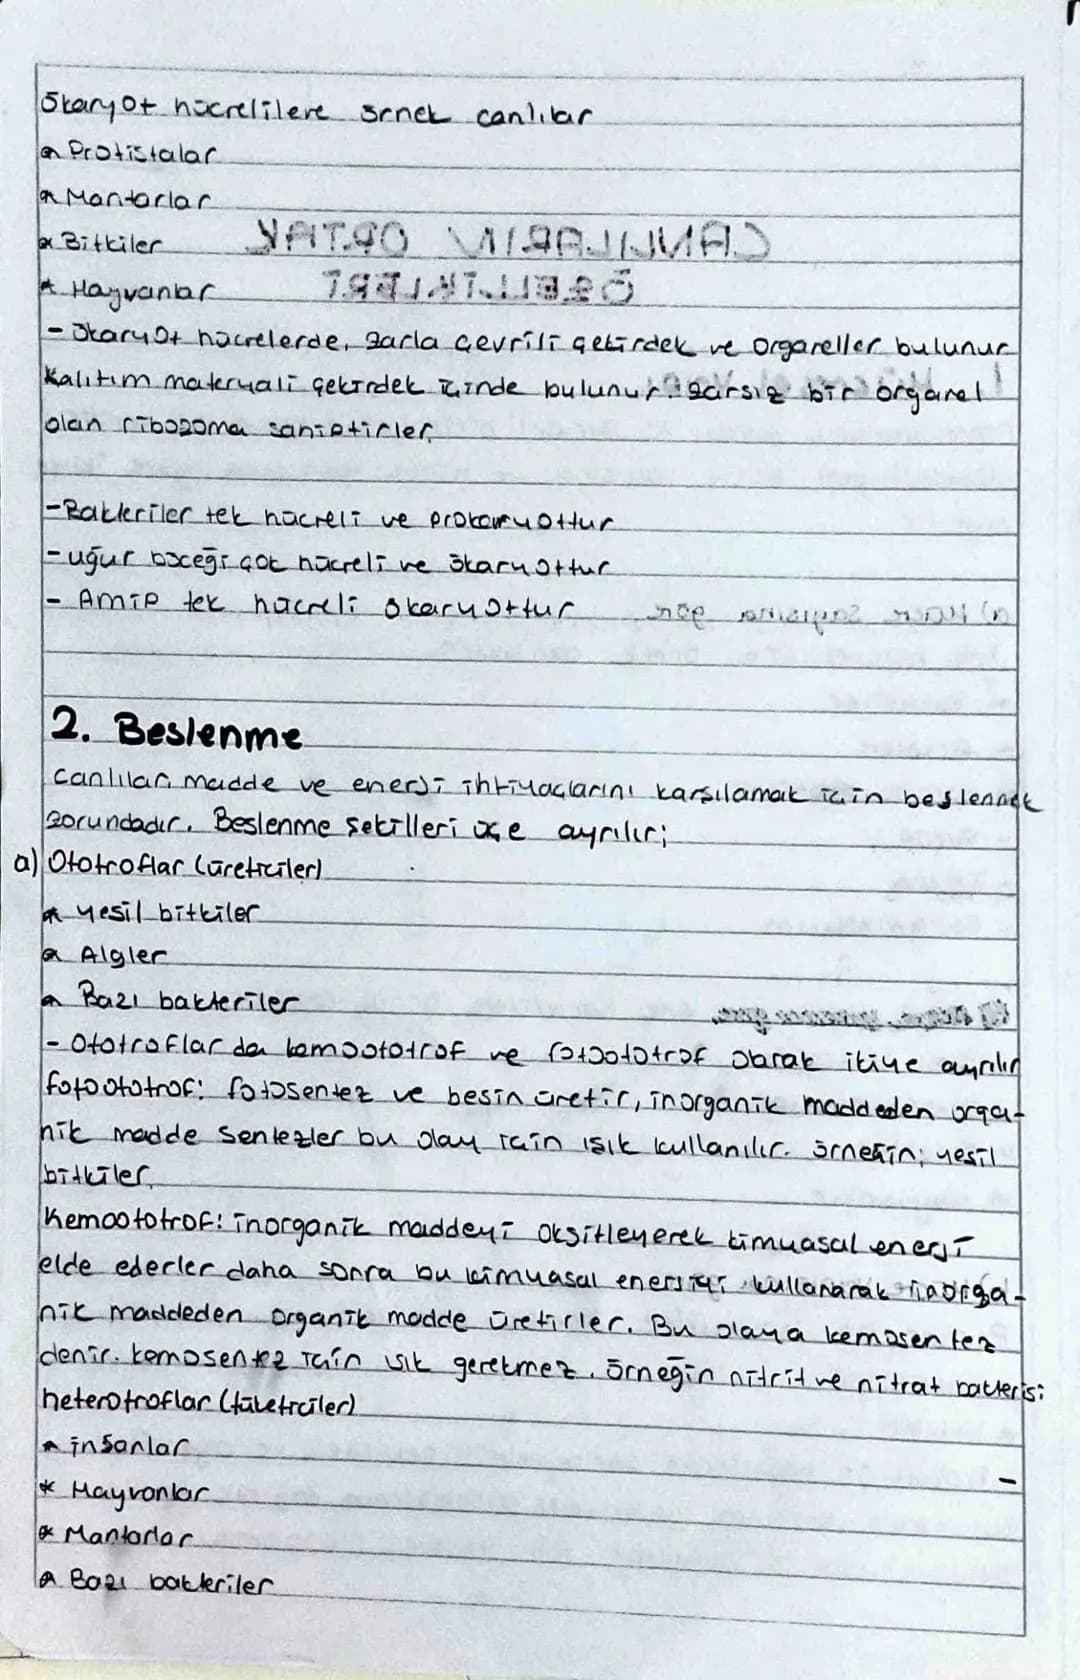 Ökaryot hücrelilere örnek canlılar
* Protistalar
* Mantarlar
* Bitkiler
* Hayvanlar
CANLILARIN ORTAK
ÖZELLİKLERİ
- Ökaryot hücrelerde, zarla çevrili çekirdek ve organeller bulunur
Kalıtım materyali çekirdek içinde bulunur. Zarsız bir organel
olan ribozoma sahiptirler.
- Bakteriler tek hücreli ve prokaryottur
- uğur böceği çok hücreli ve ökaryottur
- Amip tek hücreli ökaryottur
a) Hücre Sayısına göre
2. Beslenme
canlılar, madde ve enerji ihtiyaçlarını karşılamak için beslenmek
zorundadır. Beslenme şekilleri üçe ayrılır;
a) Ototroflar (üreticiler)
* yeşil bitkiler
* Algler
* Bazı bakteriler
- Ototroflar da kemoototrof ve fotoototrof olarak ikiye ayrılır
fotoototrof: fotosentez ve besin üretir, inorganik maddeden orga-
nik madde sentezler bu olay için ışık kullanılır. örneğin; yeşil
bitkiler.
Kemoototrof: inorganik maddeyi oksitleyerek kimyasal enerji
elde ederler daha sonra bu kimyasal enerjiyi kullanarak inorga-
nik maddeden organik madde üretirler. Bu olaya kemosentez
denir. kemosentez için ışık gerekmez. örneğin nitrit ve nitrat bakterisi
heterotroflar (tüketiciler)
* insanlar
* Hayvanlar
* Mantarlar
* Bazı bakteriler